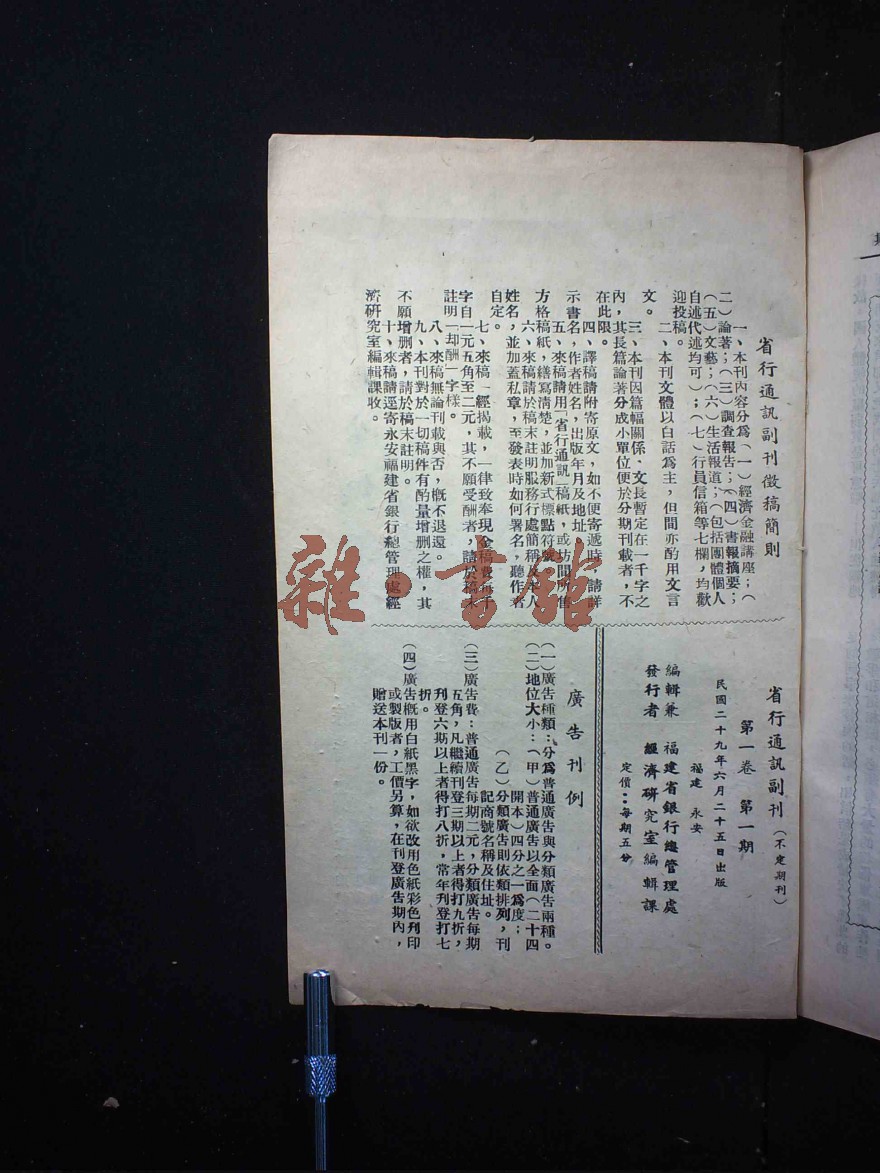 省行通訊副刊徵稿簡則
一、本刊內容分爲(一)經濟金融講座;(
二)論著;(三)調查報告;(四)書報摘要;
(五)文藝;(六)生活報道;(包括團體個人
自述代述均可);(七)行員信箱等七欄,均歡
迎投稿。
二、本刊文體以白話爲主,但間亦酌用文言
文。
三、本刊因篇幅關係,文長暫定在一千字之
內,其長篇論著分成小單位便於分期刊載者,不
在此限。
四、譯稿請附寄原文,如不便寄遞時,請詳
示書名,作者姓名,出版年月及地址。
五、來稿請用「省行通訊」稿紙,或坊間所售
方格稿紙,繕寫清楚,並加新式標點符號。
六、來稿請於稿末註明服務行處簡稱及本人
姓名,並加蓋私章,至發表時如何署名,聽作者
自定。
七、來稿一經揭載,一律致奉現金稿費每千
字自一元五角至二元,其不願受酬者,請於稿末
註明「却酬」字樣。
八、來稿無論刊載與否,槪不退還。
九、本刊對於一切稿件有酌量增删之權,其
不願增删者,請於稿末註明。
十、來稿請逕寄永安福建省銀行總管理處經
濟研究室編輯課收。
省行通訊副刊(不定期刊)
第一卷 第一期
民國二十九年六月二十五日出版
福建 永安
編輯兼 福建省銀行總管理處
發行者 經濟研究室編輯課
定價:每期五分
廣告刊例
(一)廣告種類:分爲普通廣告與分類廣告兩種。
(二)地位大小:(甲)普通廣告以全面(二十四
開本)四分之一爲度;
(乙)分類廣告則依類排列,刊
記商號名稱及住址。
(三)廣告費:普通廣告每期二元,分類廣告每期
五角,凡繼續刊登三期以上者得打九折,
刊登六期以上者得打八折,常年刊登打七
折。
(四)廣告槪用白紙黑字,如欲改用色紙彩色刋印
或製版者,工價另算,在刊登廣告期內,
贈送本刊一份。
雜·書館